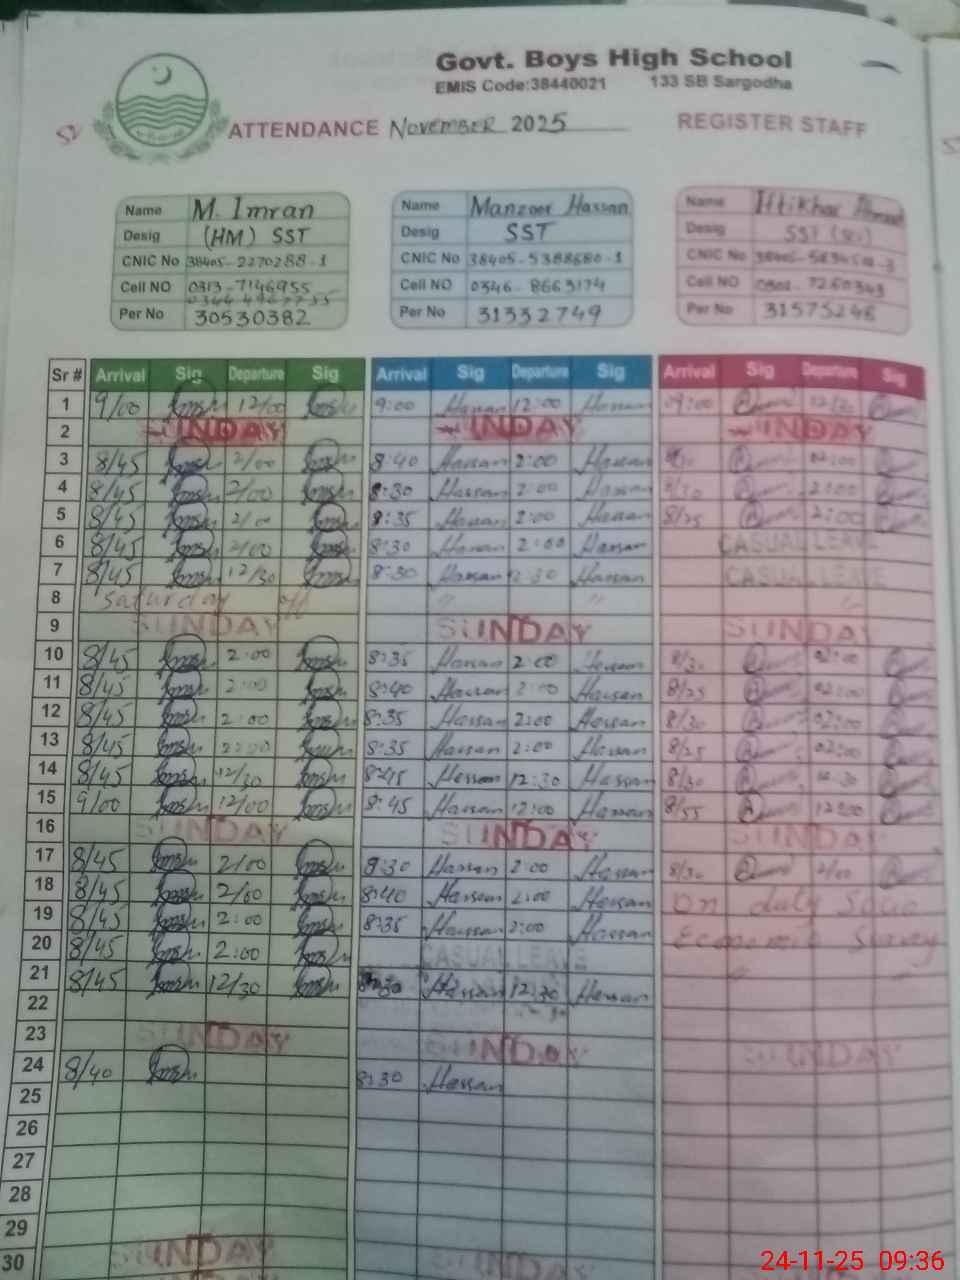 Govt. Boys High School
EMIS Code:38440021 133 SB Sargodha
ATTENDANCE NOVEMBER 2025 REGISTER STAFF
Name M. Imran Name Manzoor Hassan Name Iftikhar Ahmad
Desig (HM) SST Desig SST Desig SST (Sci)
CNIC No 38405-2270288-1 CNIC No 38405-5388680-1 CNIC No
Cell NO 0313-7146955 Cell NO 0346-8663174 Cell NO
Per No 30530382 Per No 31332749 Per No 31575248
Sr # Arrival Sig Departure Sig Arrival Sig Departure Sig Arrival Sig Departure Sig
1 9/00 12/00 9:00 Hassan 12:00 Hassan 09:00
2 SUNDAY SUNDAY SUNDAY
3 8/45 2/00 8:40 Hassan 2:00 Hassan 02:00
4 8/45 2/00 8:30 Hassan 2:00 Hassan 8/30 2:00
5 8/45 2/00 8:35 Hassan 2:00 Hassan 8/25 2:00
6 8/45 2/00 8:30 Hassan 2:00 Hassan CASUAL LEAVE
7 8/45 12/30 8:30 Hassan 12:30 Hassan CASUAL LEAVE
8 Saturday off " " "
9 SUNDAY SUNDAY SUNDAY
10 8/45 2:00 8:35 Hassan 2:00 Hassan 8/30 02:00
11 8/45 2:00 8:40 Hassan 2:00 Hassan 8/25 02:00
12 8/45 2:00 8:35 Hassan 2:00 Hassan 8/30 02:00
13 8/45 2:00 8:35 Hassan 2:00 Hassan 8/25 02:00
14 8/45 12/30 8:45 Hassan 12:30 Hassan 8/30 12:30
15 9/00 12/00 8:45 Hassan 12:00 Hassan 8/55 12:00
16 SUNDAY SUNDAY SUNDAY
17 8/45 2/00 8:30 Hassan 2:00 Hassan 8/30 2/00
18 8/45 2/00 8:40 Hassan 2:00 Hassan On duty Socio
19 8/45 2:00 8:35 Hassan 2:00 Hassan Economic Survey
20 8/45 2:00 CASUAL LEAVE "
21 8/45 12/30 Hassan 12:30 Hassan
22
23 SUNDAY SUNDAY SUNDAY
24 8/40 8:30 Hassan
25
26
27
28
29
30 SUNDAY SUNDAY
24-11-25 09:36